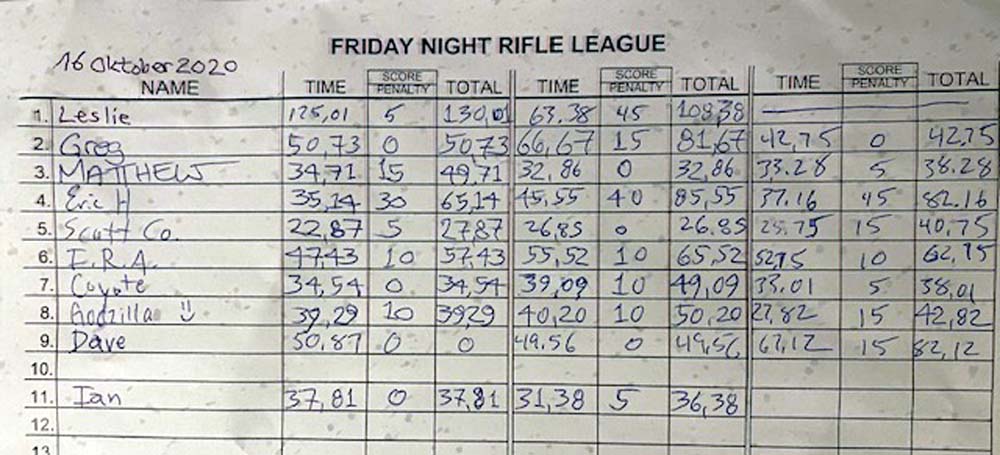 FRIDAY NIGHT RIFLE LEAGUE
16 Oktober 2020
NAME TIME SCORE PENALTY TOTAL TIME SCORE PENALTY TOTAL TIME SCORE PENALTY TOTAL
1. Leslie 125,01 5 130,01 63,38 45 108,38
2. Greg 50,73 0 50,73 66,67 15 81,67 42,75 0 42.75
3. MATTHEW 34,71 15 49,71 32,86 0 32,86 33.28 5 38.28
4. Eric H 35,14 30 65,14 45,55 40 85,55 37.16 45 82.16
5. Scott Co. 22,87 5 27,87 26,85 0 26.85 25.75 15 40,75
6. 47,43 10 57,43 55,52 10 65,52 52,75 10 62,75
7. Coyote 34,54 0 34,54 39,09 10 49,09 33.01 5 38,01
8. Godzilla 39,29 10 39,29 40,20 10 50,20 27,82 15 42,82
9. Dave 50,87 0 0 49.56 0 49,56 67,12 15 82,12
10.
11. Ian 37,81 0 37,81 31,38 5 36,38
12.
13.